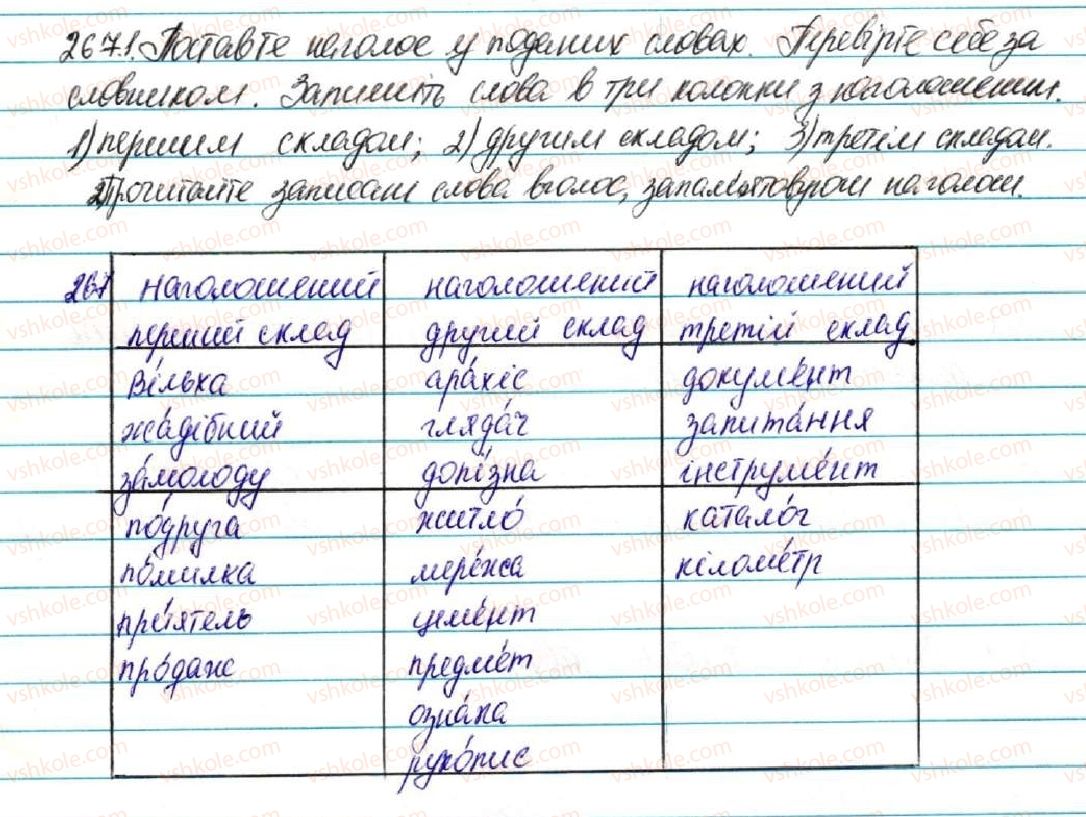 267.1. Поставте наголос у поданих словах. Перевірте себе за
словником. Запишіть слова в три колонки з наголошеним.
1) першим складом; 2) другим складом; 3) третім складом.
2) Прочитайте записані слова вголос, запам'ятовуючи наголоси.
267 наголошений наголошений наголошений
перший склад другий склад третій склад
ві́лька ара́хіс докуме́нт
жа́дібний гляда́ч запита́ння
за́молоду допі́зна інструме́нт
по́друга житло́ катало́г
по́милка мере́жа кіломе́тр
при́ятель цеме́нт
про́даж предме́т
озна́ка
руко́пис
vshkole.com